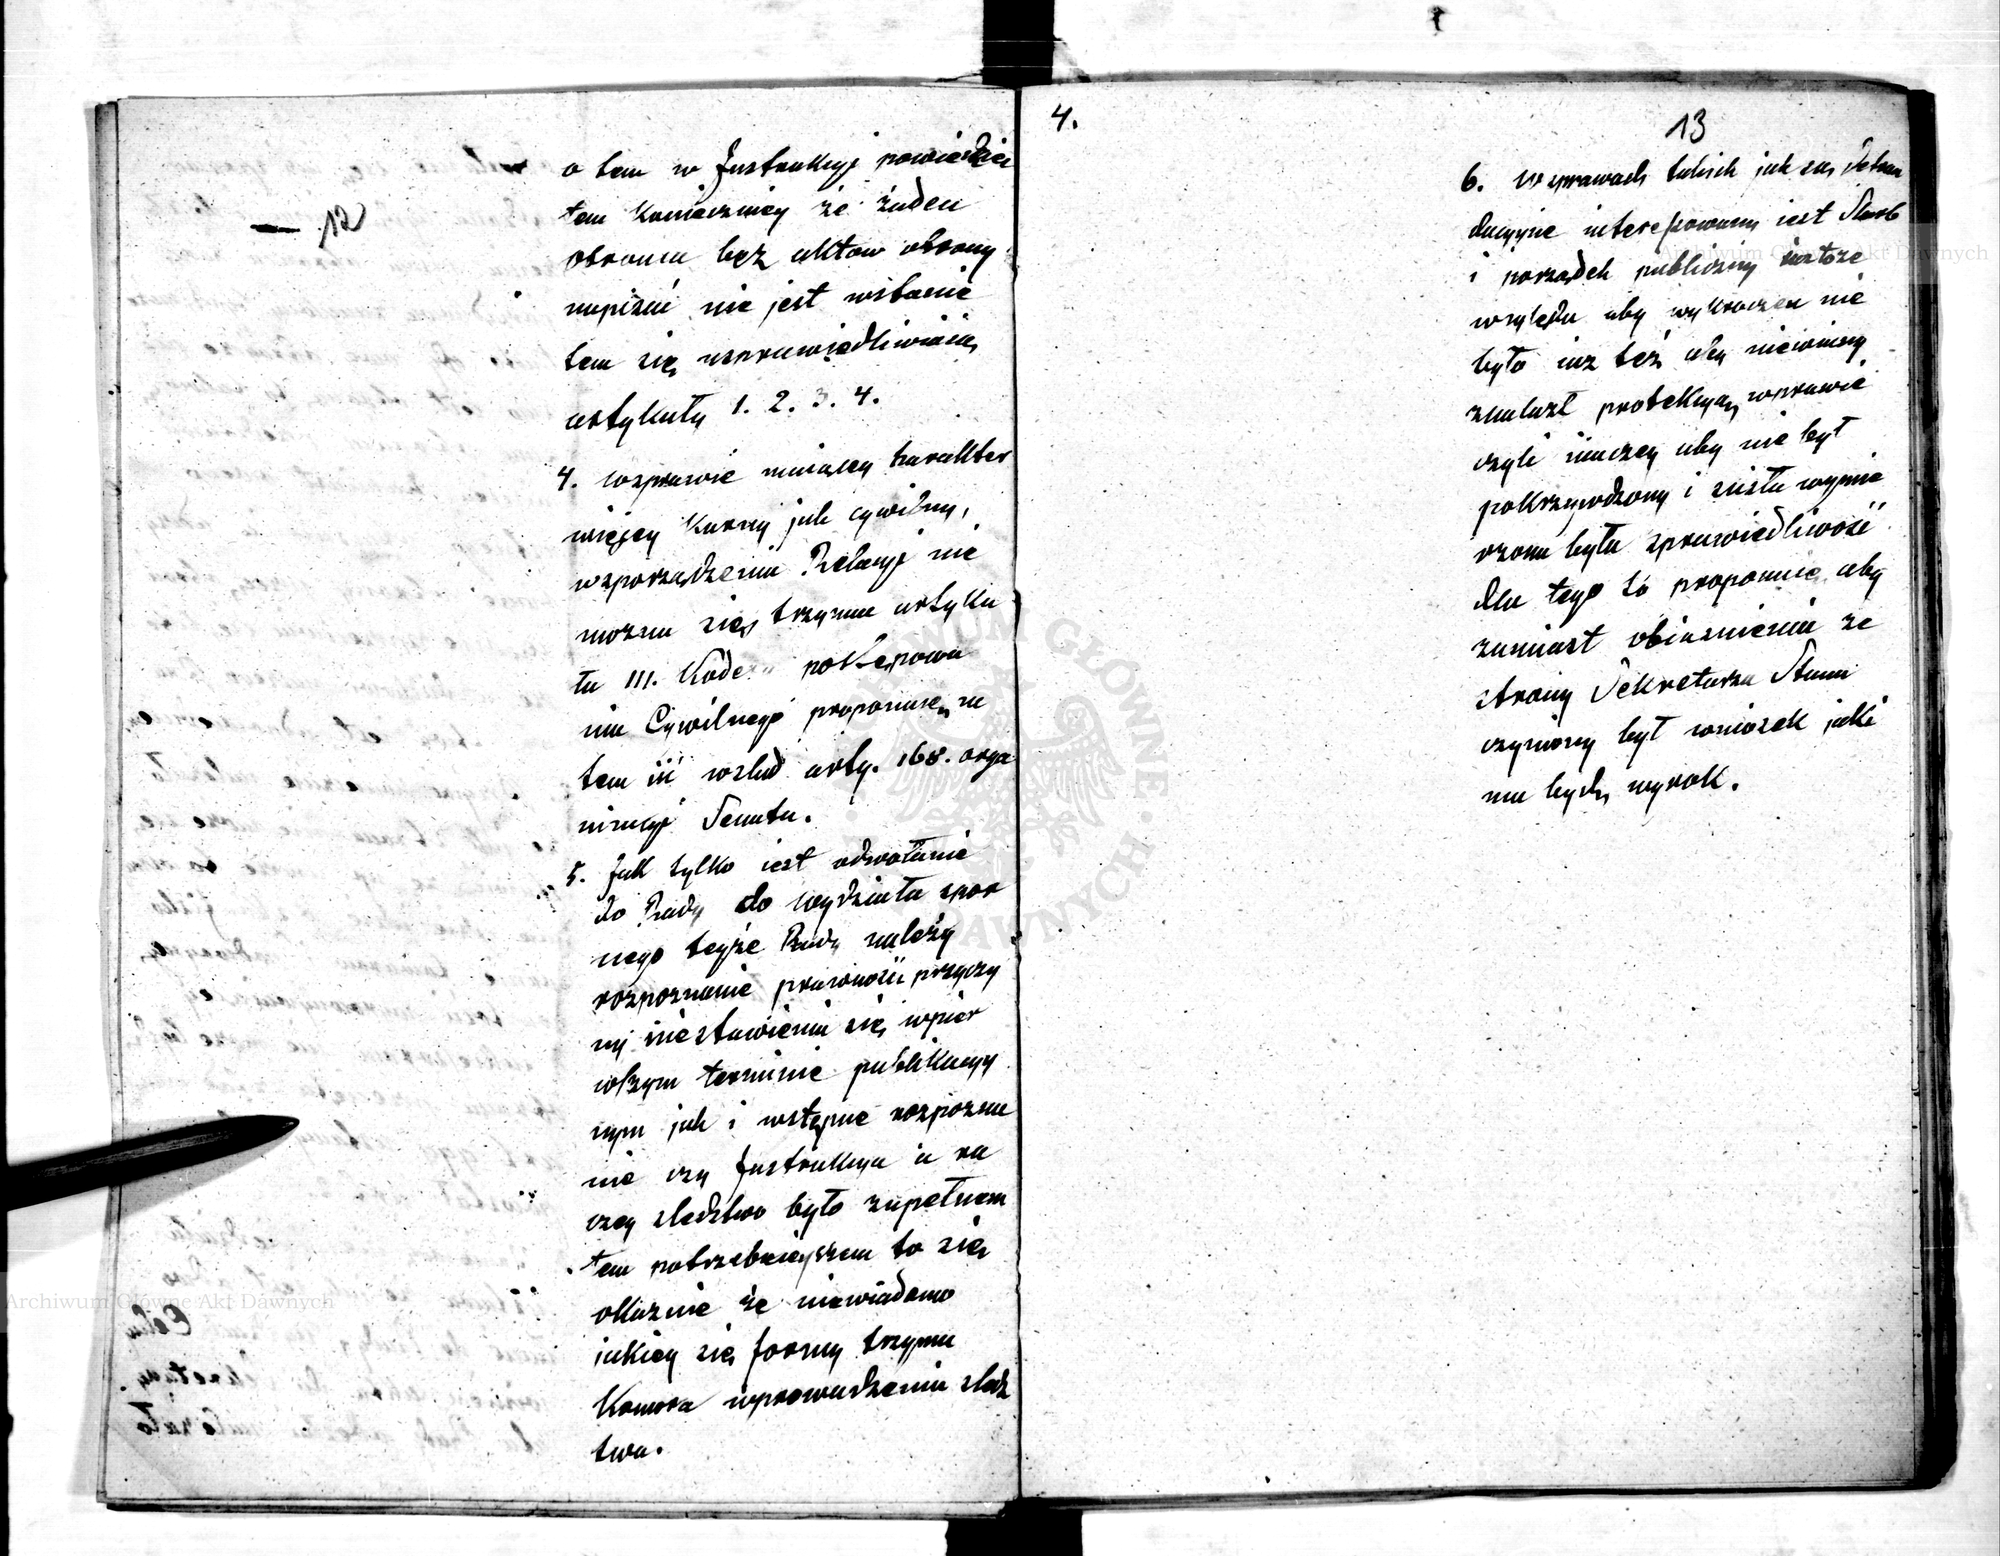 12
o tem w Instrukcyi powiedzieć
tem konieczniey że żaden
obrońca bez aktow obrony
napisać nie jest wstanie
tem się usprawiedliwiaią
artykuły 1. 2. 3. 4.
4. wsprawie maiącey charakter
więcey karny jak cywilny,
wsporządzeniu Relacyi nie
można się trzymać artyku
łu III. Kodexu postępowa
nia Cywilnego proponuię za
tem iść wślad arty. 168. orga
nizacyi Senatu.
5. Jak tylko iest odwołanie
do Rady do wydziału spor
nego teyże Rady należy
rozpoznanie prawności przyczy
ny niestawienia się wpier
wszym terminie publikacyy
nym jak i wstępne rozpozna
nie czy Instrukcya a ra
czey sledztwo było zupełnem
tem potrzebnieyszem to się
okaznie że niewiadomo
jakiey się formy trzyma
Komora wprowadzeniu sledz
twa.
4.
13
6. w sprawach takich jak są Defrau
dacyine interessowany iest Skarb
i porządek publiczny
względu aby wykroczeń nie
było iuz też aby niewinny
znalazł protekcyą wprawie
czyli inaczey aby nie był
pokrzywdzony i wymie
rzona była sprawiedliwość
dla tego to proponuię aby
zamiast obiasnienia ze
strony Sekretarza Stanu
czyniony był wniosek jaki
ma bydź wyrok.
ARCHIWUM GŁÓWNE AKT DAWNYCH
Archiwum Główne Akt Dawnych
Archiwum Główne Akt Dawnych